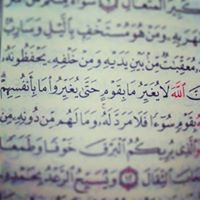 ٱلْكَبِيرُ ٱلْمُتَعَالِ ۝ سَوَآءٌ مِّنكُم مَّنْ
جَهَرَ بِهِۦ وَمَنْ هُوَ مُسْتَخْفٍۭ بِٱلَّيْلِ وَسَارِبٌۢ
مُعَقِّبَٰتٌ مِّنۢ بَيْنِ يَدَيْهِ وَمِنْ خَلْفِهِۦ يَحْفَظُونَهُۥ
ٱللَّهَ لَا يُغَيِّرُ مَا بِقَوْمٍ حَتَّىٰ يُغَيِّرُوا۟ مَا بِأَنفُسِهِمْ
بِقَوْمٍ سُوٓءًا فَلَا مَرَدَّ لَهُۥ وَمَا لَهُم مِّن دُونِهِۦ مِن
ٱلَّذِى يُرِيكُمُ ٱلْبَرْقَ خَوْفًا وَطَمَعًا
ٱلثِّقَالَ ۝ وَيُسَبِّحُ ٱلرَّعْدُ بِحَمْدِهِۦ